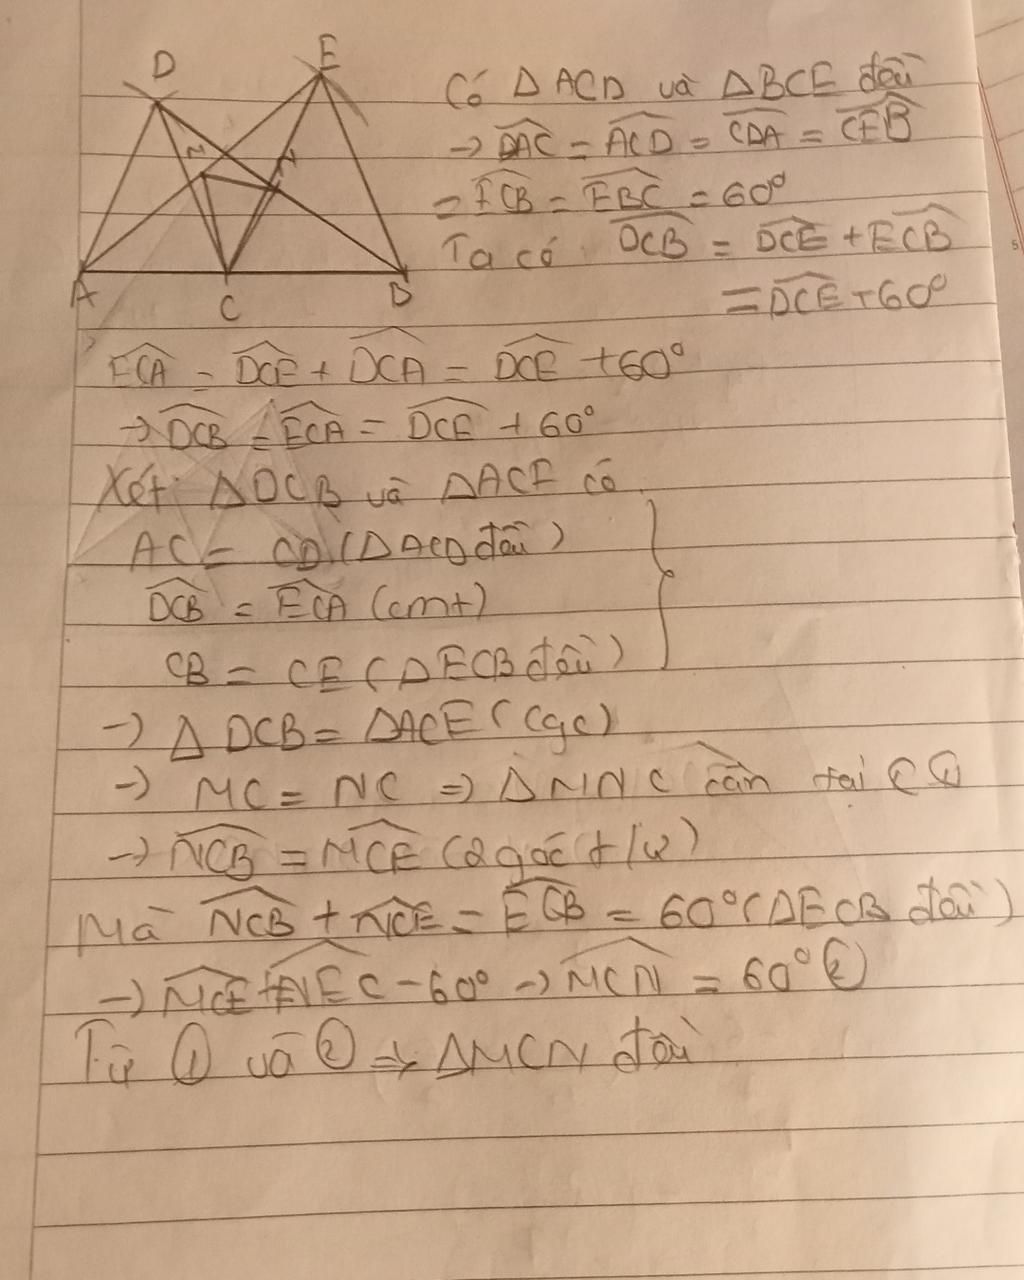 D
E
M
N
A
C
B
Có ΔACD và ΔBCE đều
→ DAC = ACD = CDA = CEB
= ECB = EBC = 60°
Ta có DCB = DCE + ECB
= DCE + 60°
ECA = DCE + DCA = DCE + 60°
→ DCB = ECA = DCE + 60°
Xét ΔDCB và ΔACE có
AC = CD (ΔACD đều)
DCB = ECA (cmt)
CB = CE (ΔECB đều)
→ Δ DCB = ΔACE (cgc)
→ MC = NC ⇒ ΔMNC cân tại C ①
→ NCB = MCE (2 góc t/ư)
Mà NCB + NCE = ECB = 60° (ΔECB đều)
→ MCE + NEC = 60° → MCN = 60° ②
Từ ① và ② ⇒ ΔMCN đều